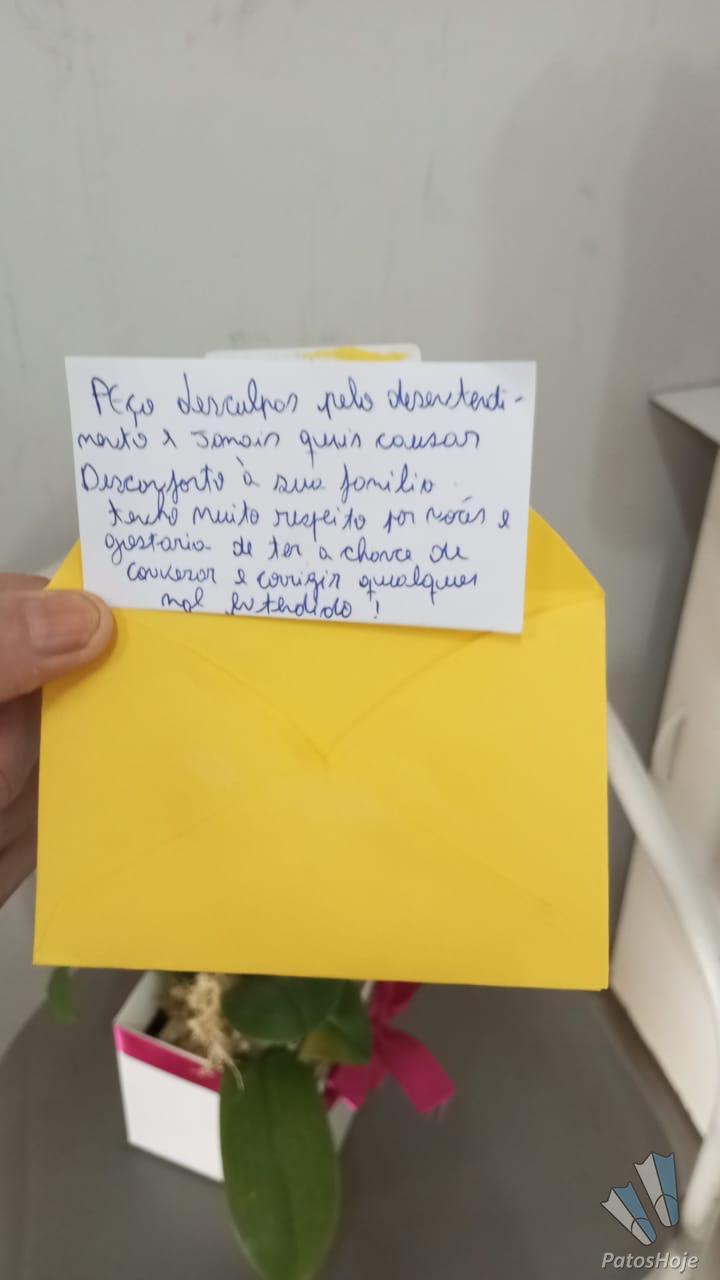 PEço desculpas pelo desentendi-
mento e jamais quis causar
Desconforto à sua família.
tenho muito respeito por vocês e
gostaria de ter a chance de
conversar e corrigir qualquer
mal entendido !
PatosHoje